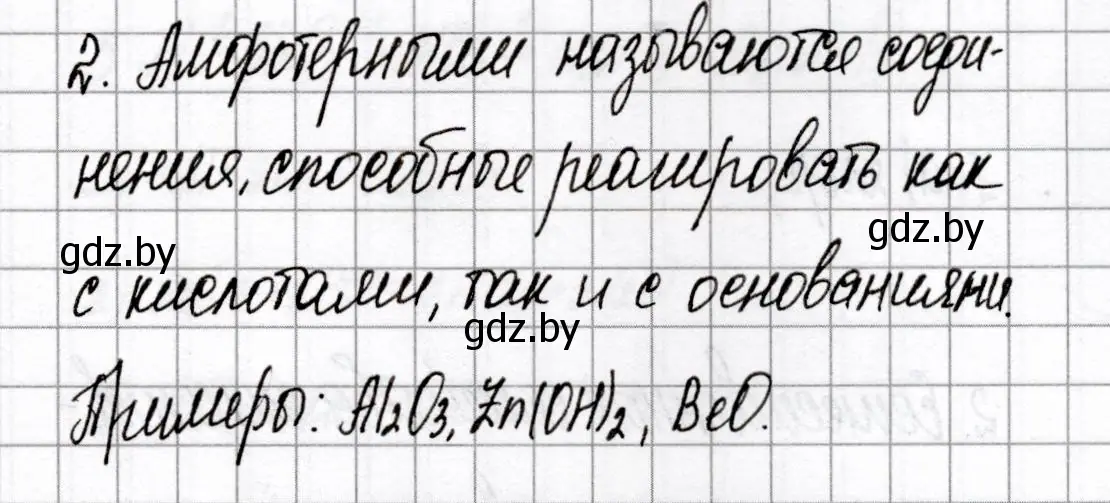 2. Амфотерными называются соеди-
нения, способные реагировать как
gdz.by
gdz.by
с кислотами, так и с основаниями.
gdz.by
Примеры: Al₂O₃, Zn(OH)₂, BeO.